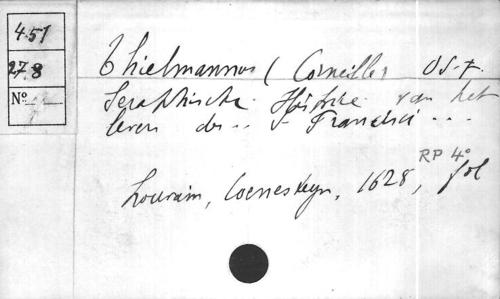 451
278
Nº
Thielmannus (Corneille) OSF.
Seraphische Historie van het
leven des .. S Francisci ...
RP 4°
Louvain, Coenesteyn, 1628, fol